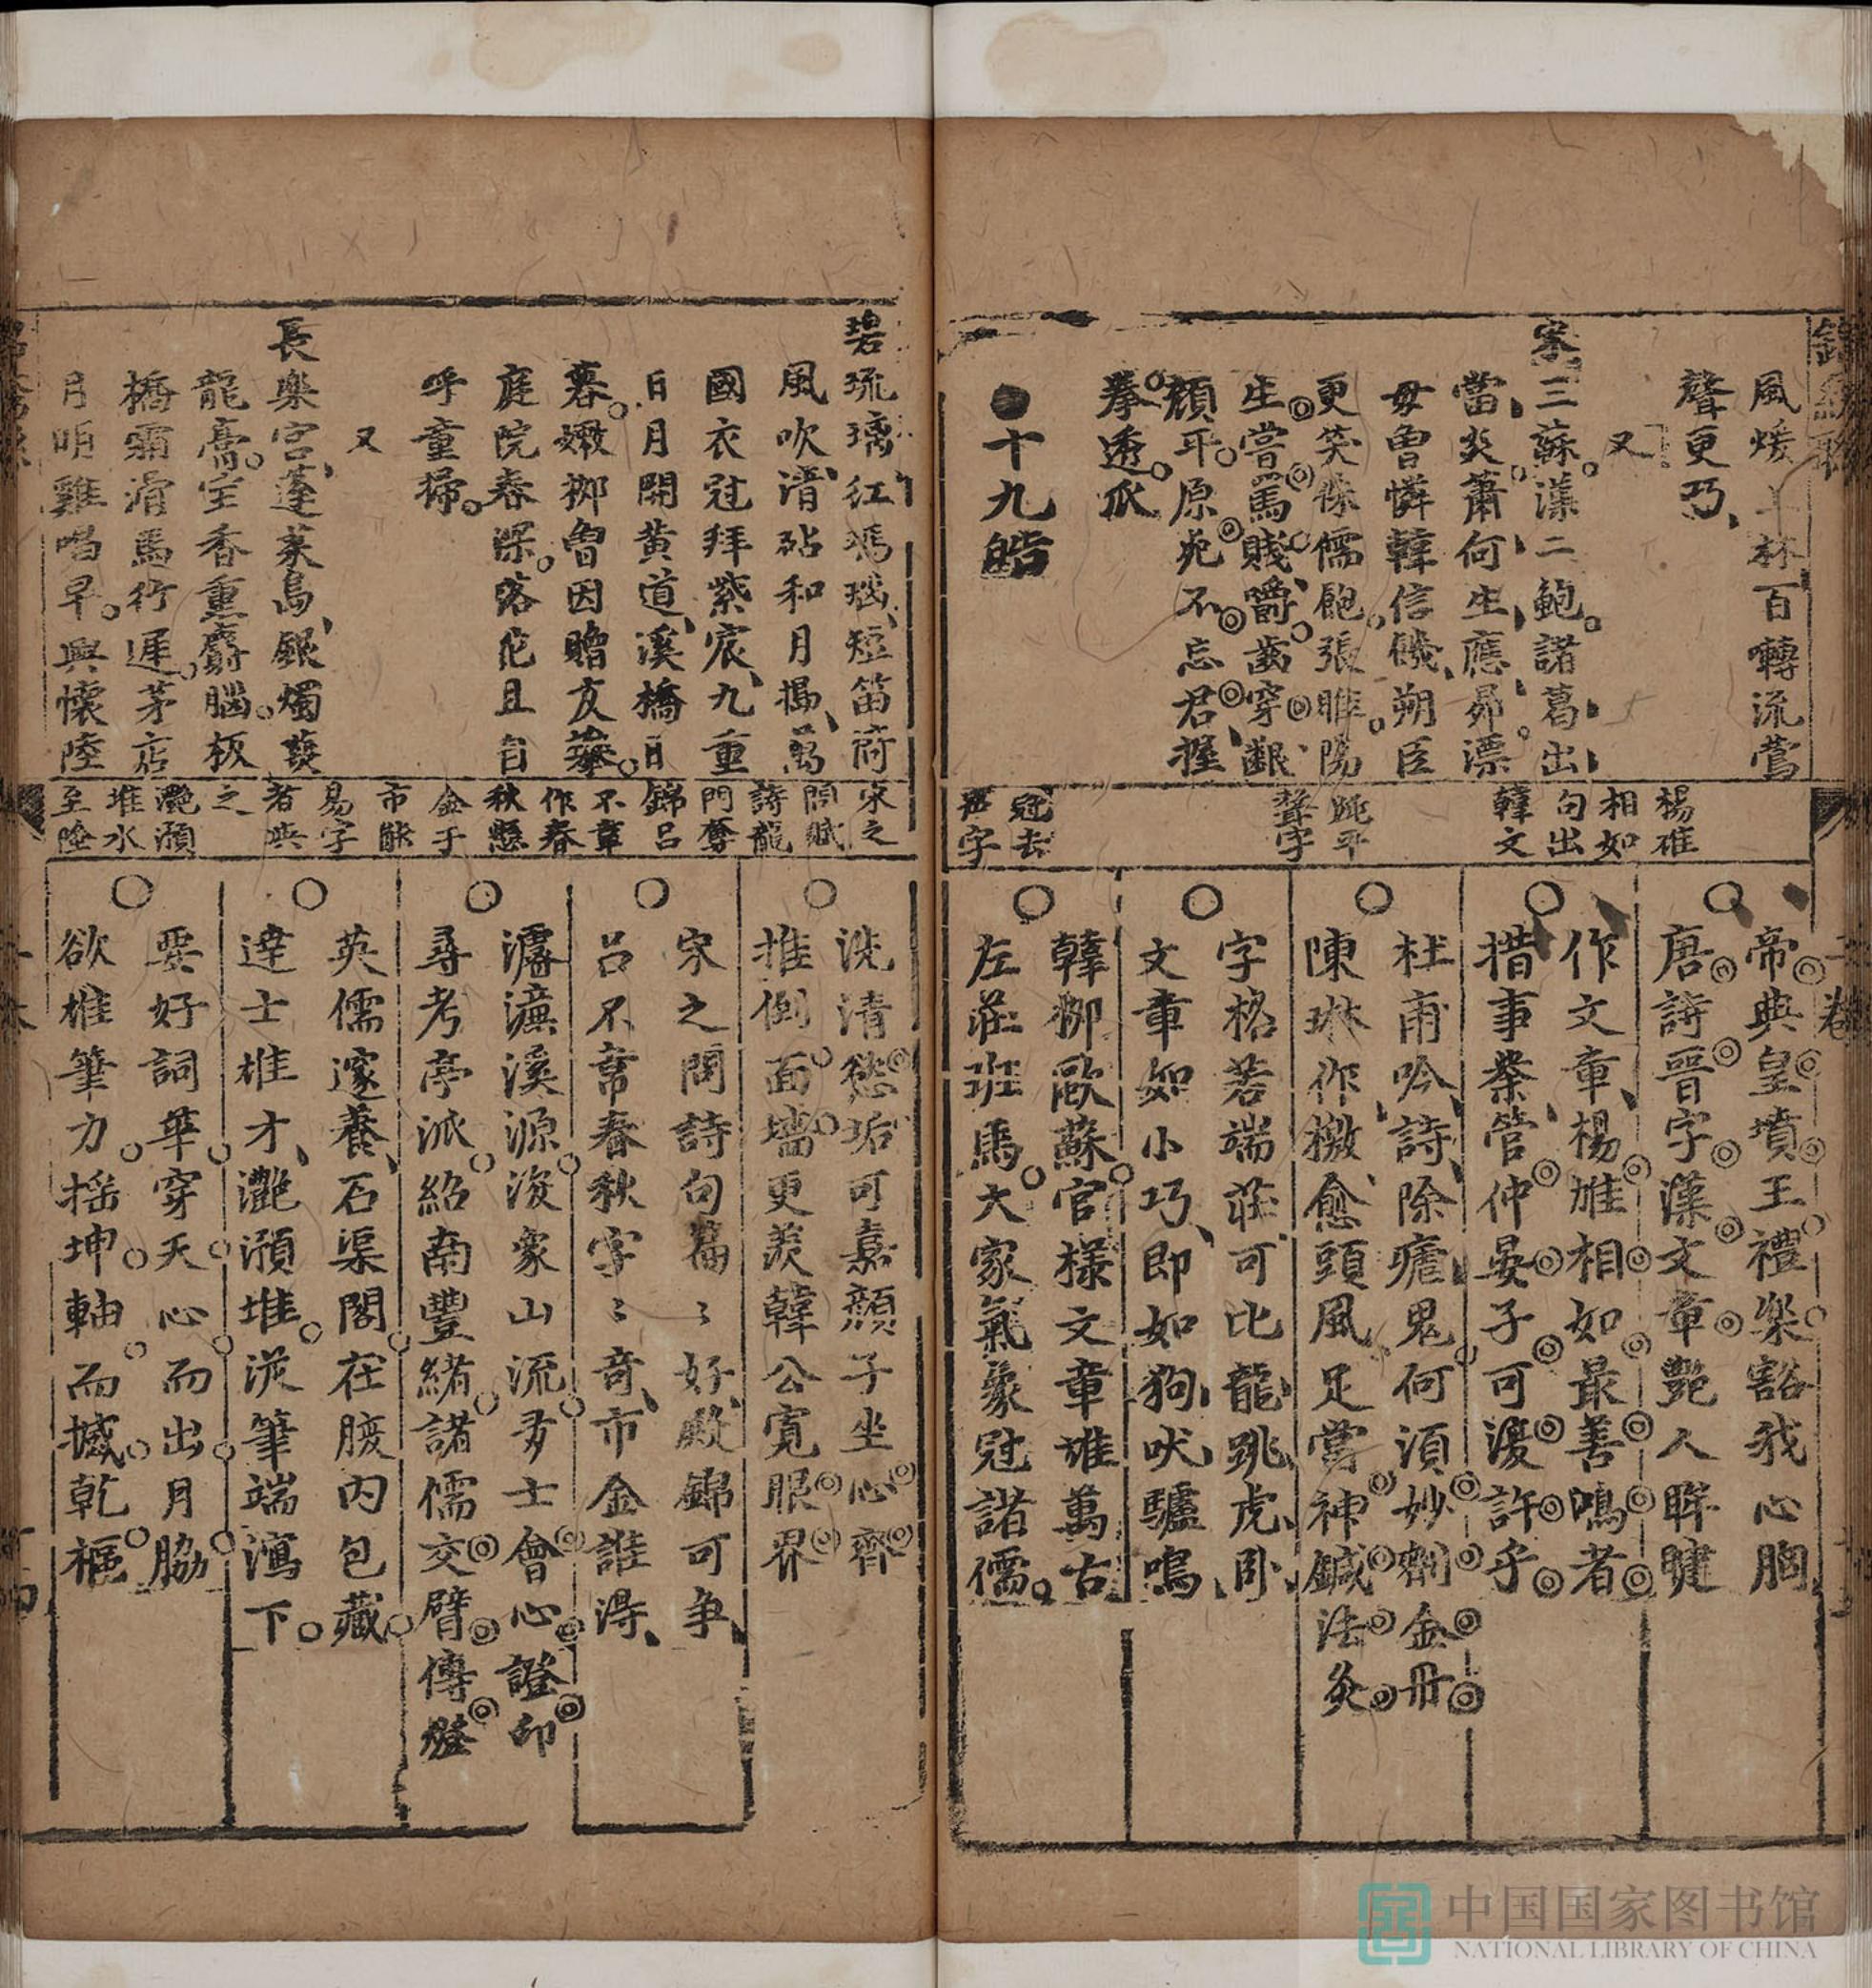 風煖
百囀流鶯
聲更巧
又
三蘇藻二鮑諸葛出
當炎蕭何生應昴漂
母曾憐韓信饑朔臣
更笑侏儒飽張睢陽
生嘗罵賊嚼齒穿齦
顏平原死不忘君握
拳透爪
●十九皓
楊雄
相如
句出
韓文
跳平
聲字
冠去
聲字
帝典皇墳王禮樂豁我心胸
唐詩晉字漢文章艷人眸睫
作文章楊雄相如最善鳴者
措事業管仲晏子可復許乎
杜甫吟詩除瘧鬼何須妙劑金丹
陳琳作檄愈頭風足當神鍼法灸
字格若端莊可比龍跳虎臥
文章如小巧即如狗吠驢鳴
韓柳歐蘇官樣文章雄萬古
左莊班馬大家氣象冠諸儒
碧琉璃紅瑪瑙短笛符
風吹清砧和月搗萬
國衣冠拜紫宸九重
日月開黃道溪橋日
暮嫩柳曾因贈友攀
庭院春深落花且自
呼童掃
又
長樂宮蓬萊島銀燭
龍膏宝香重麝腦板
橋霜滑馬行遲茅店
月明雞唱早興懷陸
宋之
問賦
詩龍
門奪
錦呂
不韋
作春
秋懸
金于
市能
易字
者與
之
灔澦
堆水
至險
洗清愁垢可嘉顏子坐心齊
推倒面墻更羨韓公寬眼界
宋之問詩句篇〻好殿錦可爭
呂不韋春秋字〻奇市金誰得
濂溪源浚象山流多士會心證印
尋考亭派紹南豐緒諸儒交臂傳燈
英儒邃養石渠閣在腹內包藏
達士雄才灧澦堆從筆端瀉下
要好詞華穿天心而出月脇
欲雄筆力搖坤軸而撼乾樞
中国国家图书馆
NATIONAL LIBRARY OF CHINA